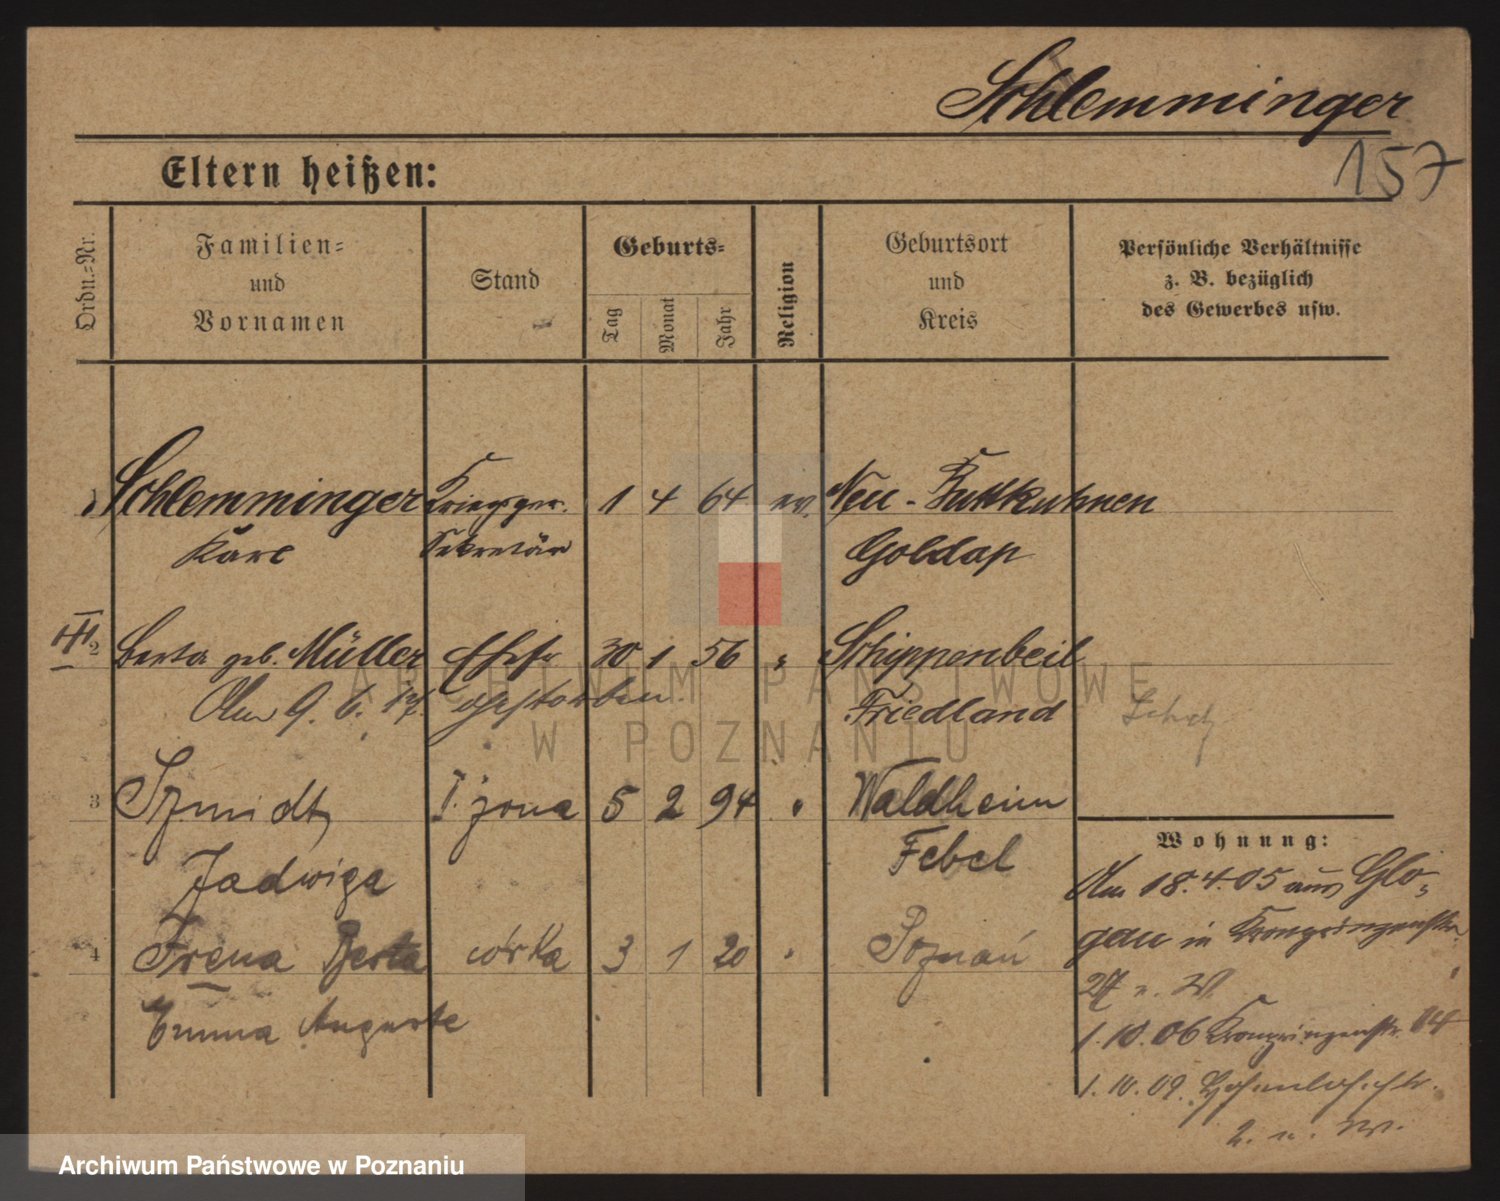 Schlemminger
157
Eltern heißen:
Ordn.=Nr.
Familien=
und
Vornamen
Stand
Geburts=
Tag
Monat
Jahr
Religion
Geburtsort
und
Kreis
Persönliche Verhältnisse
z. B. bezüglich
des Gewerbes usw.
1 Schlemminger Kriegsger. 1 4 64 ev. Neu-Buttkuhnen
Karl Sekretär Goldap
2 Berta geb. Müller Ehefr 30 1 56 " Schippenbeil
Am 9. 6. 17. gestorben. Friedland
3 Szmidt I. żona 5 2 94 " Waldheim
Jadwiga Febel
4 Irena Berta córka 3 1 20 " Poznań
Emma Auguste
Wohnung:
Am 18.4.05 aus Glo-
gau in Kronprinzenstr.
27 u. W.
1.10.06 Kronprinzenstr. 14
1.10.09. Hohenlohestr.
2. u. W.
ARCHIWUM PAŃSTWOWE
W POZNANIU
Archiwum Państwowe w Poznaniu